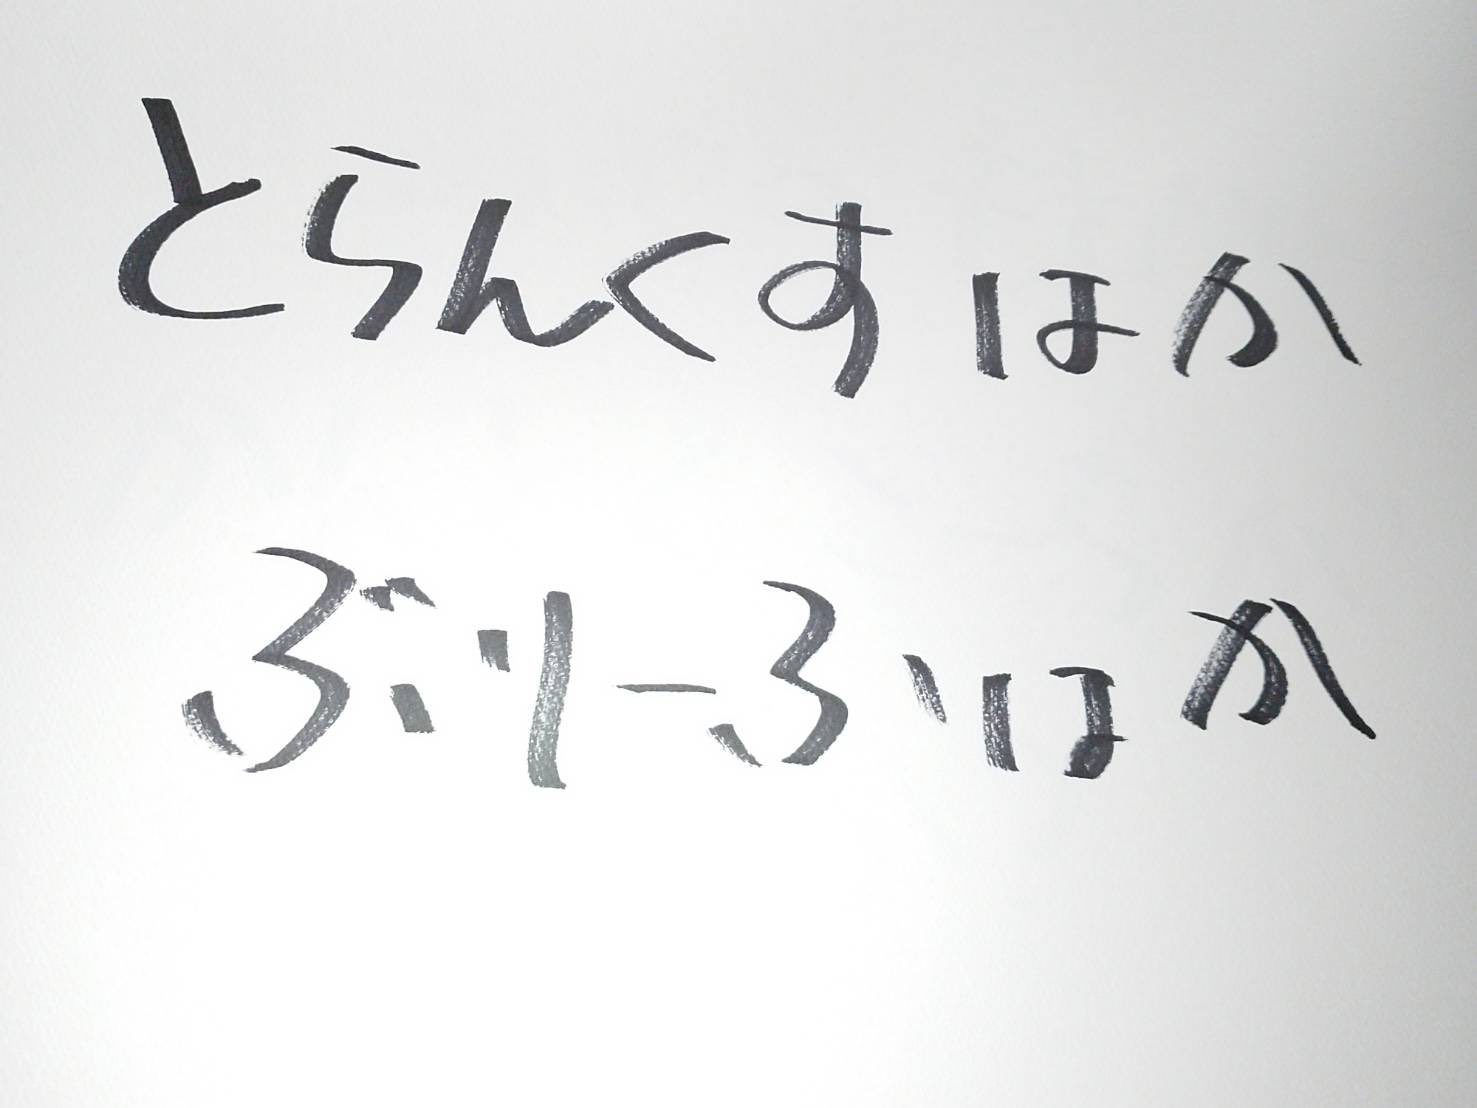 とらんくす ほか
ぶりーふ ほか